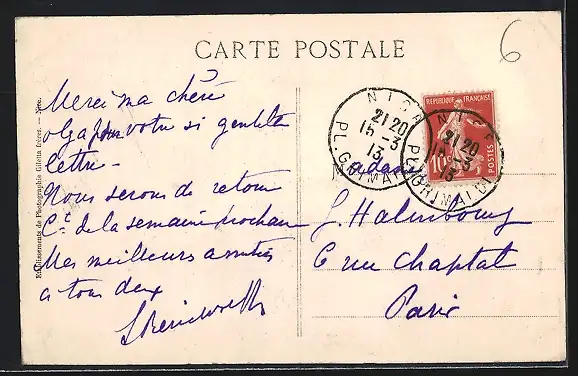 CARTE POSTALE
6
Merci ma chère
Olga pour votre si gentille
lettre -
Nous serons de retour
Ct. de la semaine prochaine
Mes meilleurs amitiés
a tous deux
Etablissements de Photographie Giletta frères. — Nice.
NICE
21 20
15-3
13
PL. GRIMALDI
REPUBLIQUE FRANÇAISE
10c
POSTES
NICE
21 20
15-3
13
PL. GRIMALDI
Madame
Halmbourg
6 rue Chaptal
Paris